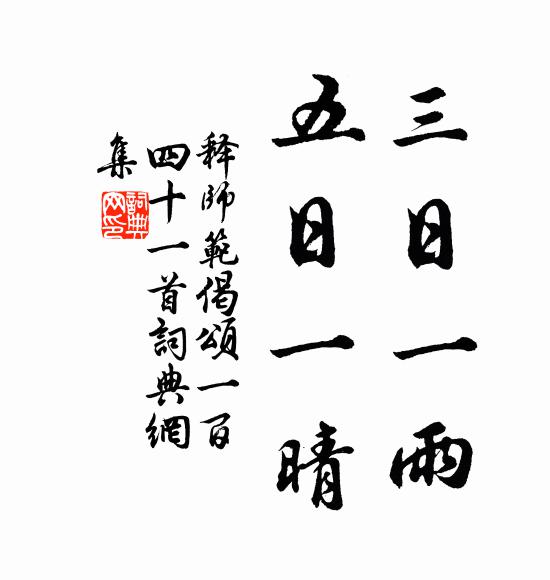 三日一雨
五日一晴
释师範偈頌一百
四十一首詞典網
集
詞典
网印